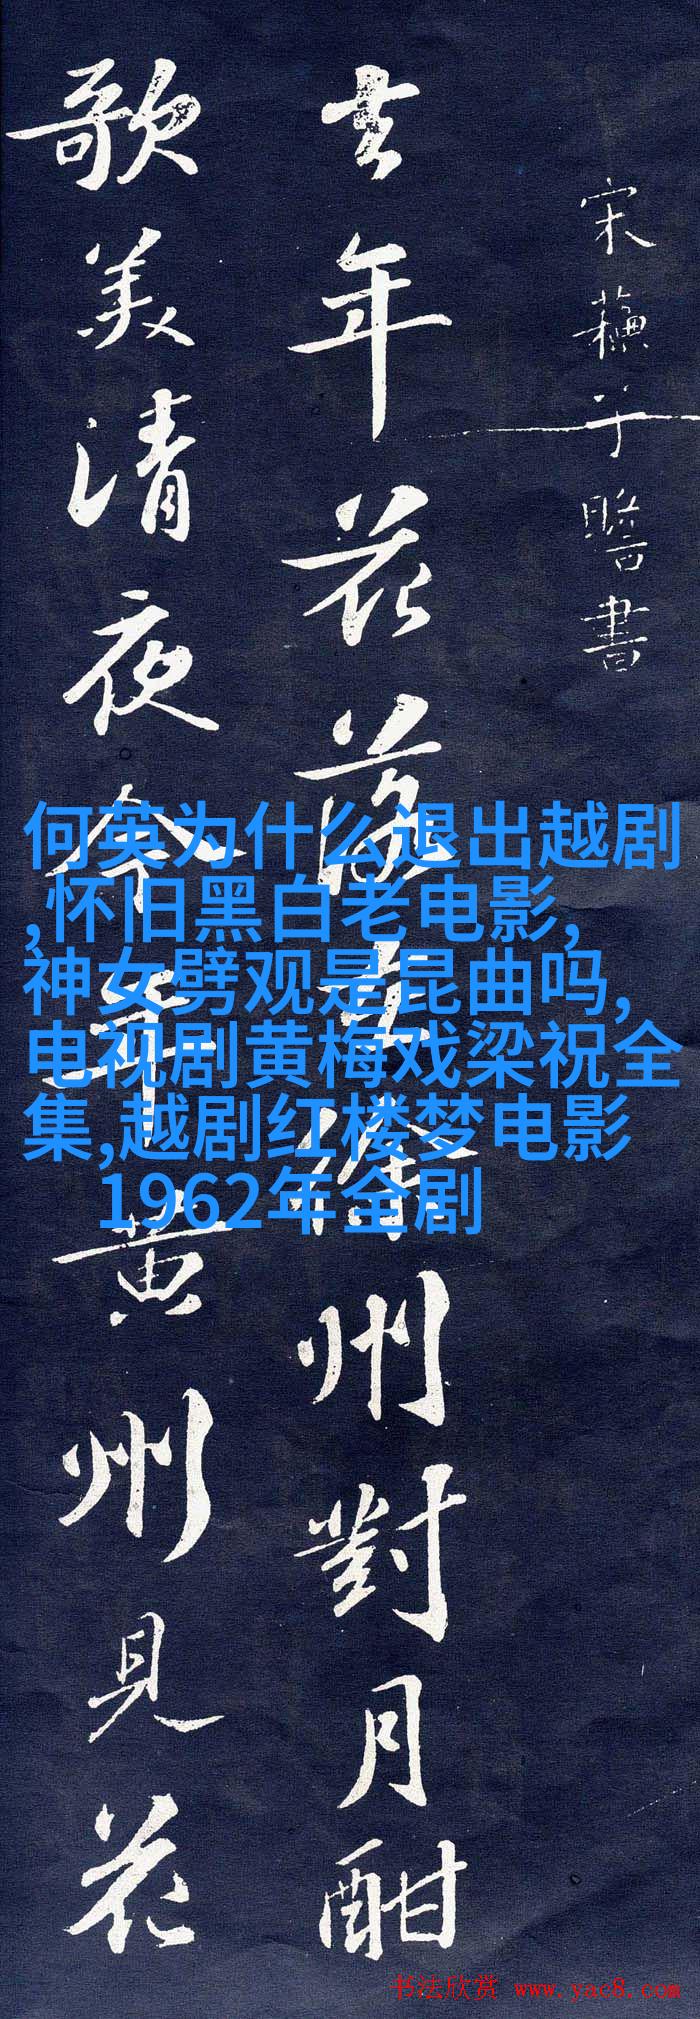 宋蘇子瞻書
去年花落在徐州對月酣
歌美清夜今年黄州見花
何英为什么退出越剧
,怀旧黑白老电影,
神女劈观是昆曲吗,
电视剧黄梅戏梁祝全
集,越剧红楼梦电影
1962年全剧
书法欣赏 www.yac8.com